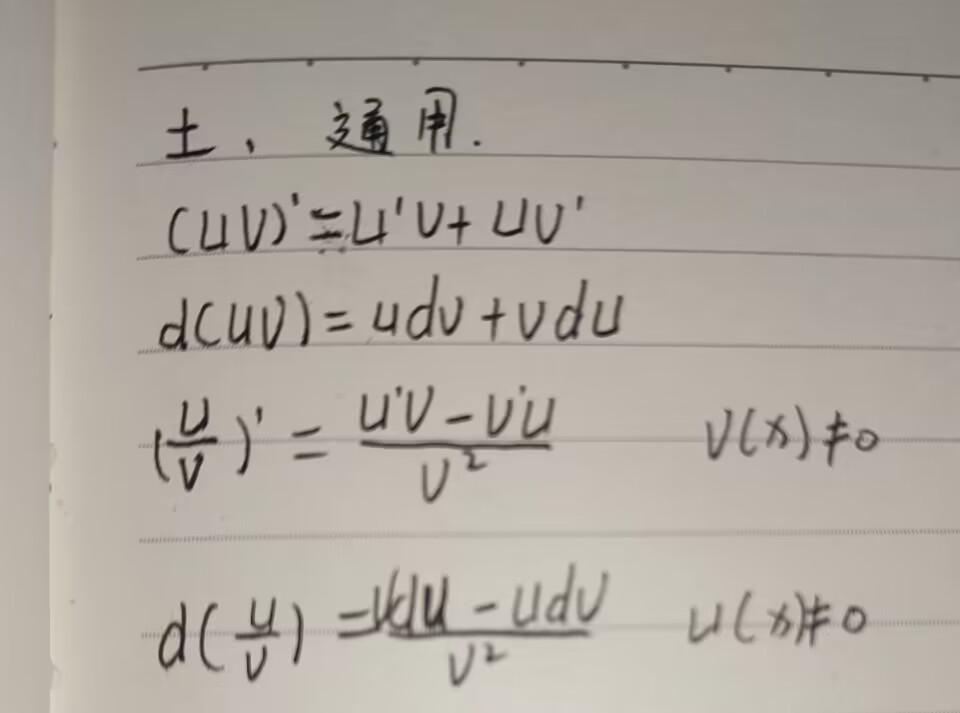 ±, 通用.
(uv)'=u'v+uv'
d(uv)=udv+vdu
(u/v)' = (u'v-v'u)/v² v(x)≠0
d(u/v) = (vdu-udv)/v² u(x)≠0